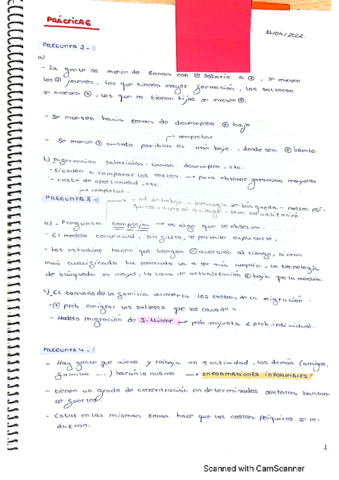 PRÁCTICAS
21/04/2022
PREGUNTA 2.-
a)
- La gente se mueve de zonas con ⊖ salario a ⊕, se mueven
los ⊕ jóvenes, los que tienen mayor formación, los solteros
se mueven ⊕, los que no tienen hijos se mueven ⊕.
- Se mueven hacia zonas de desempleo ⊕ bajo
→ comprobar
- Se mueve ⊕ cuando
más bajo, desde sea ⊕ barato.
b) Diferencias salariales, tasas desempleo, etc.
- tienden a comparar los costes → para obtener ganancias mayores
- coste de oportunidad, etc.
→ comprobar
PREGUNTA 3.-
a) - Pregunta compleja → es algo que se observa.
- El modelo convencional, sin ajuste, te permite explicarlo.
- Los estudios hacen que tengas ⊖ aversión al riesgo, si eres
más cualificado tu mercado va a ser más amplio, la tecnología
de búsqueda es mayor, la tasa de actualización ⊕ baja
b) El tamaño de la familia aumenta los costes de la migración.
- ⊕ prob. emigrar los solteros que los casados
- Modelo migración de J. Mincer → prob conjunta ≠ prob individual.
PREGUNTA 4.-
- Hay gente que vive y trabaja en x actividad, los demás (amigos,
familia ...) harán lo mismo → INFORMACIONES INFORMALES
- tienen un grado de concentración en determinados sectores bastan-
te fuertes.
- Estar en las mismas zonas hace que los costes psíquicos se re-
duzcan.
1
Scanned with CamScanner